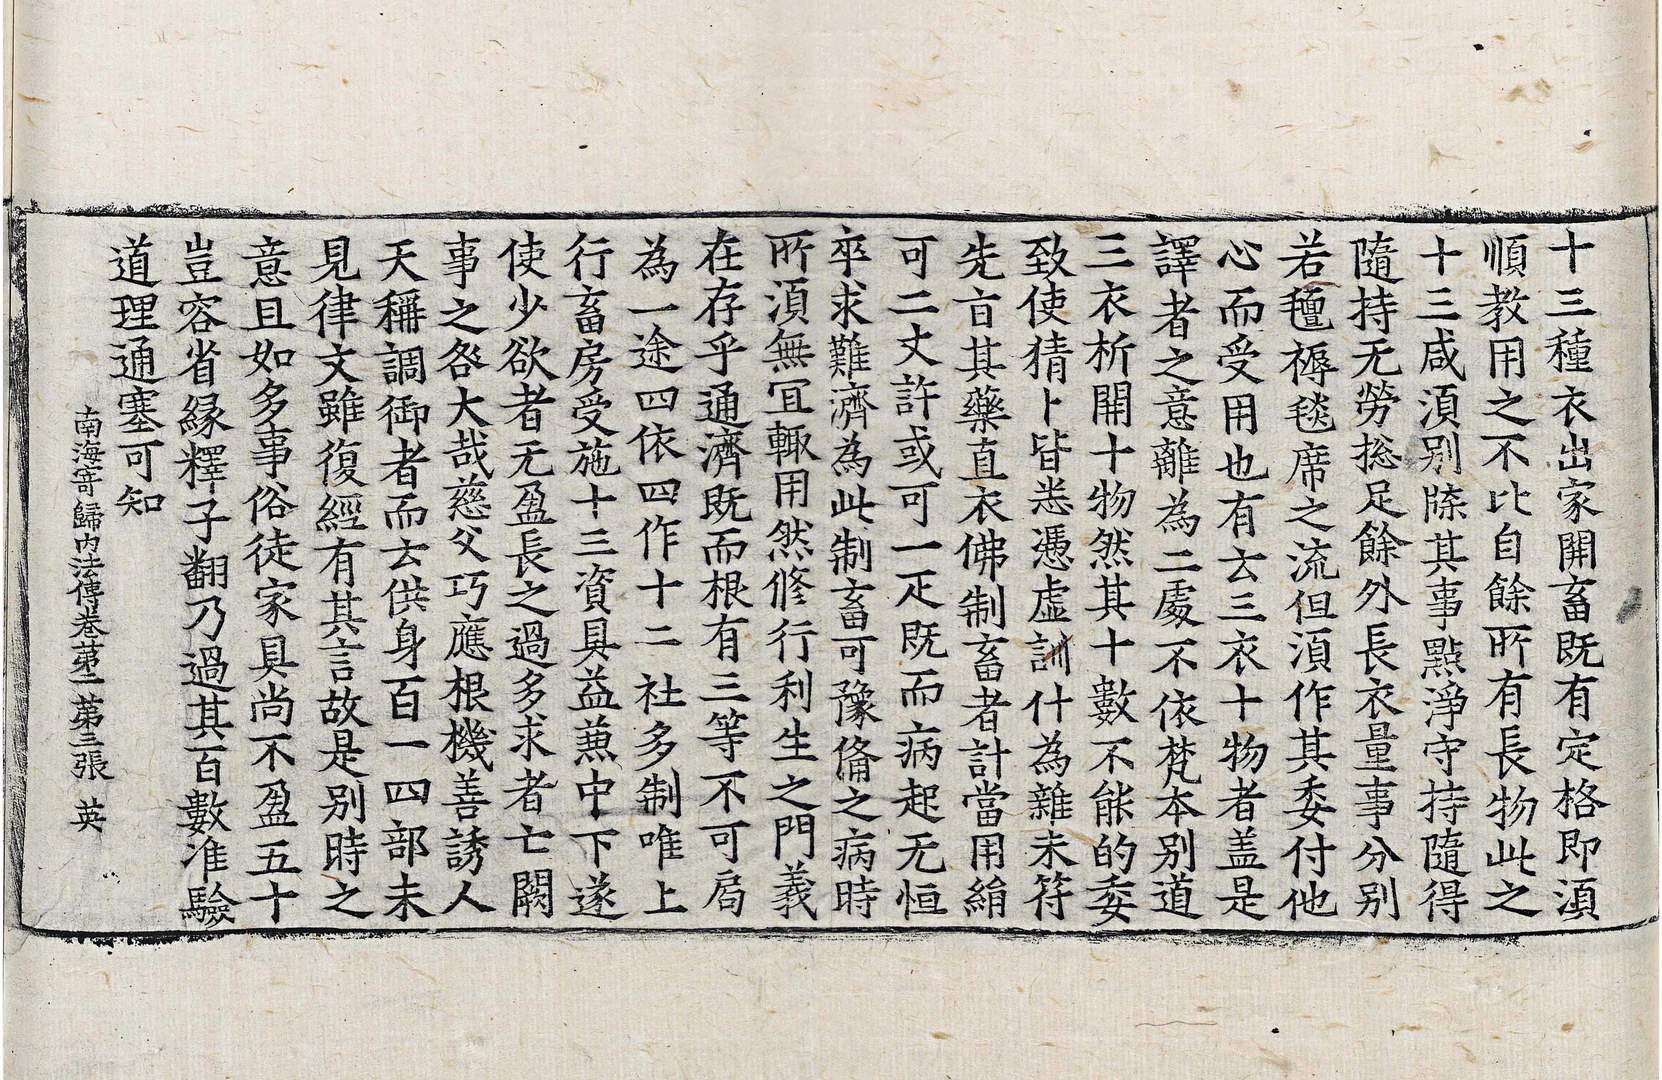 十三種衣出家開畜既有定格即湏
順教用之不比自餘所有長物此之
十三咸湏別牒其事點淨守持隨得
隨持无勞捴足餘外長衣量事分別
若氊褥毯席之流但湏作其委付他
心而受用也有云三衣十物者盖是
譯者之意離為二處不依梵本別道
三衣析開十物然其十數不能的委
致使猜卜皆恙憑虛訓什為雜未符
先旨其藥直衣佛制畜者計當用絹
可二丈許或可一疋既而病起无恒
卒求難濟為此制畜可豫俻之病時
所湏無冝輙用然修行利生之門義
在存乎通濟既而根有三等不可局
為一途四依四作十二杜多制唯上
行畜房受施十三資具益兼中下遂
使少欲者无盈長之過多求者亡闕
事之咎大哉慈父巧應根機善誘人
天稱調御者而云供身百一四部未
見律文雖復經有其言故是別時之
意且如多事俗徒家具尚不盈五十
豈容省緣釋子翻乃過其百數准驗
道理通塞可知
南海寄歸內法傳卷苐二 苐三張 英